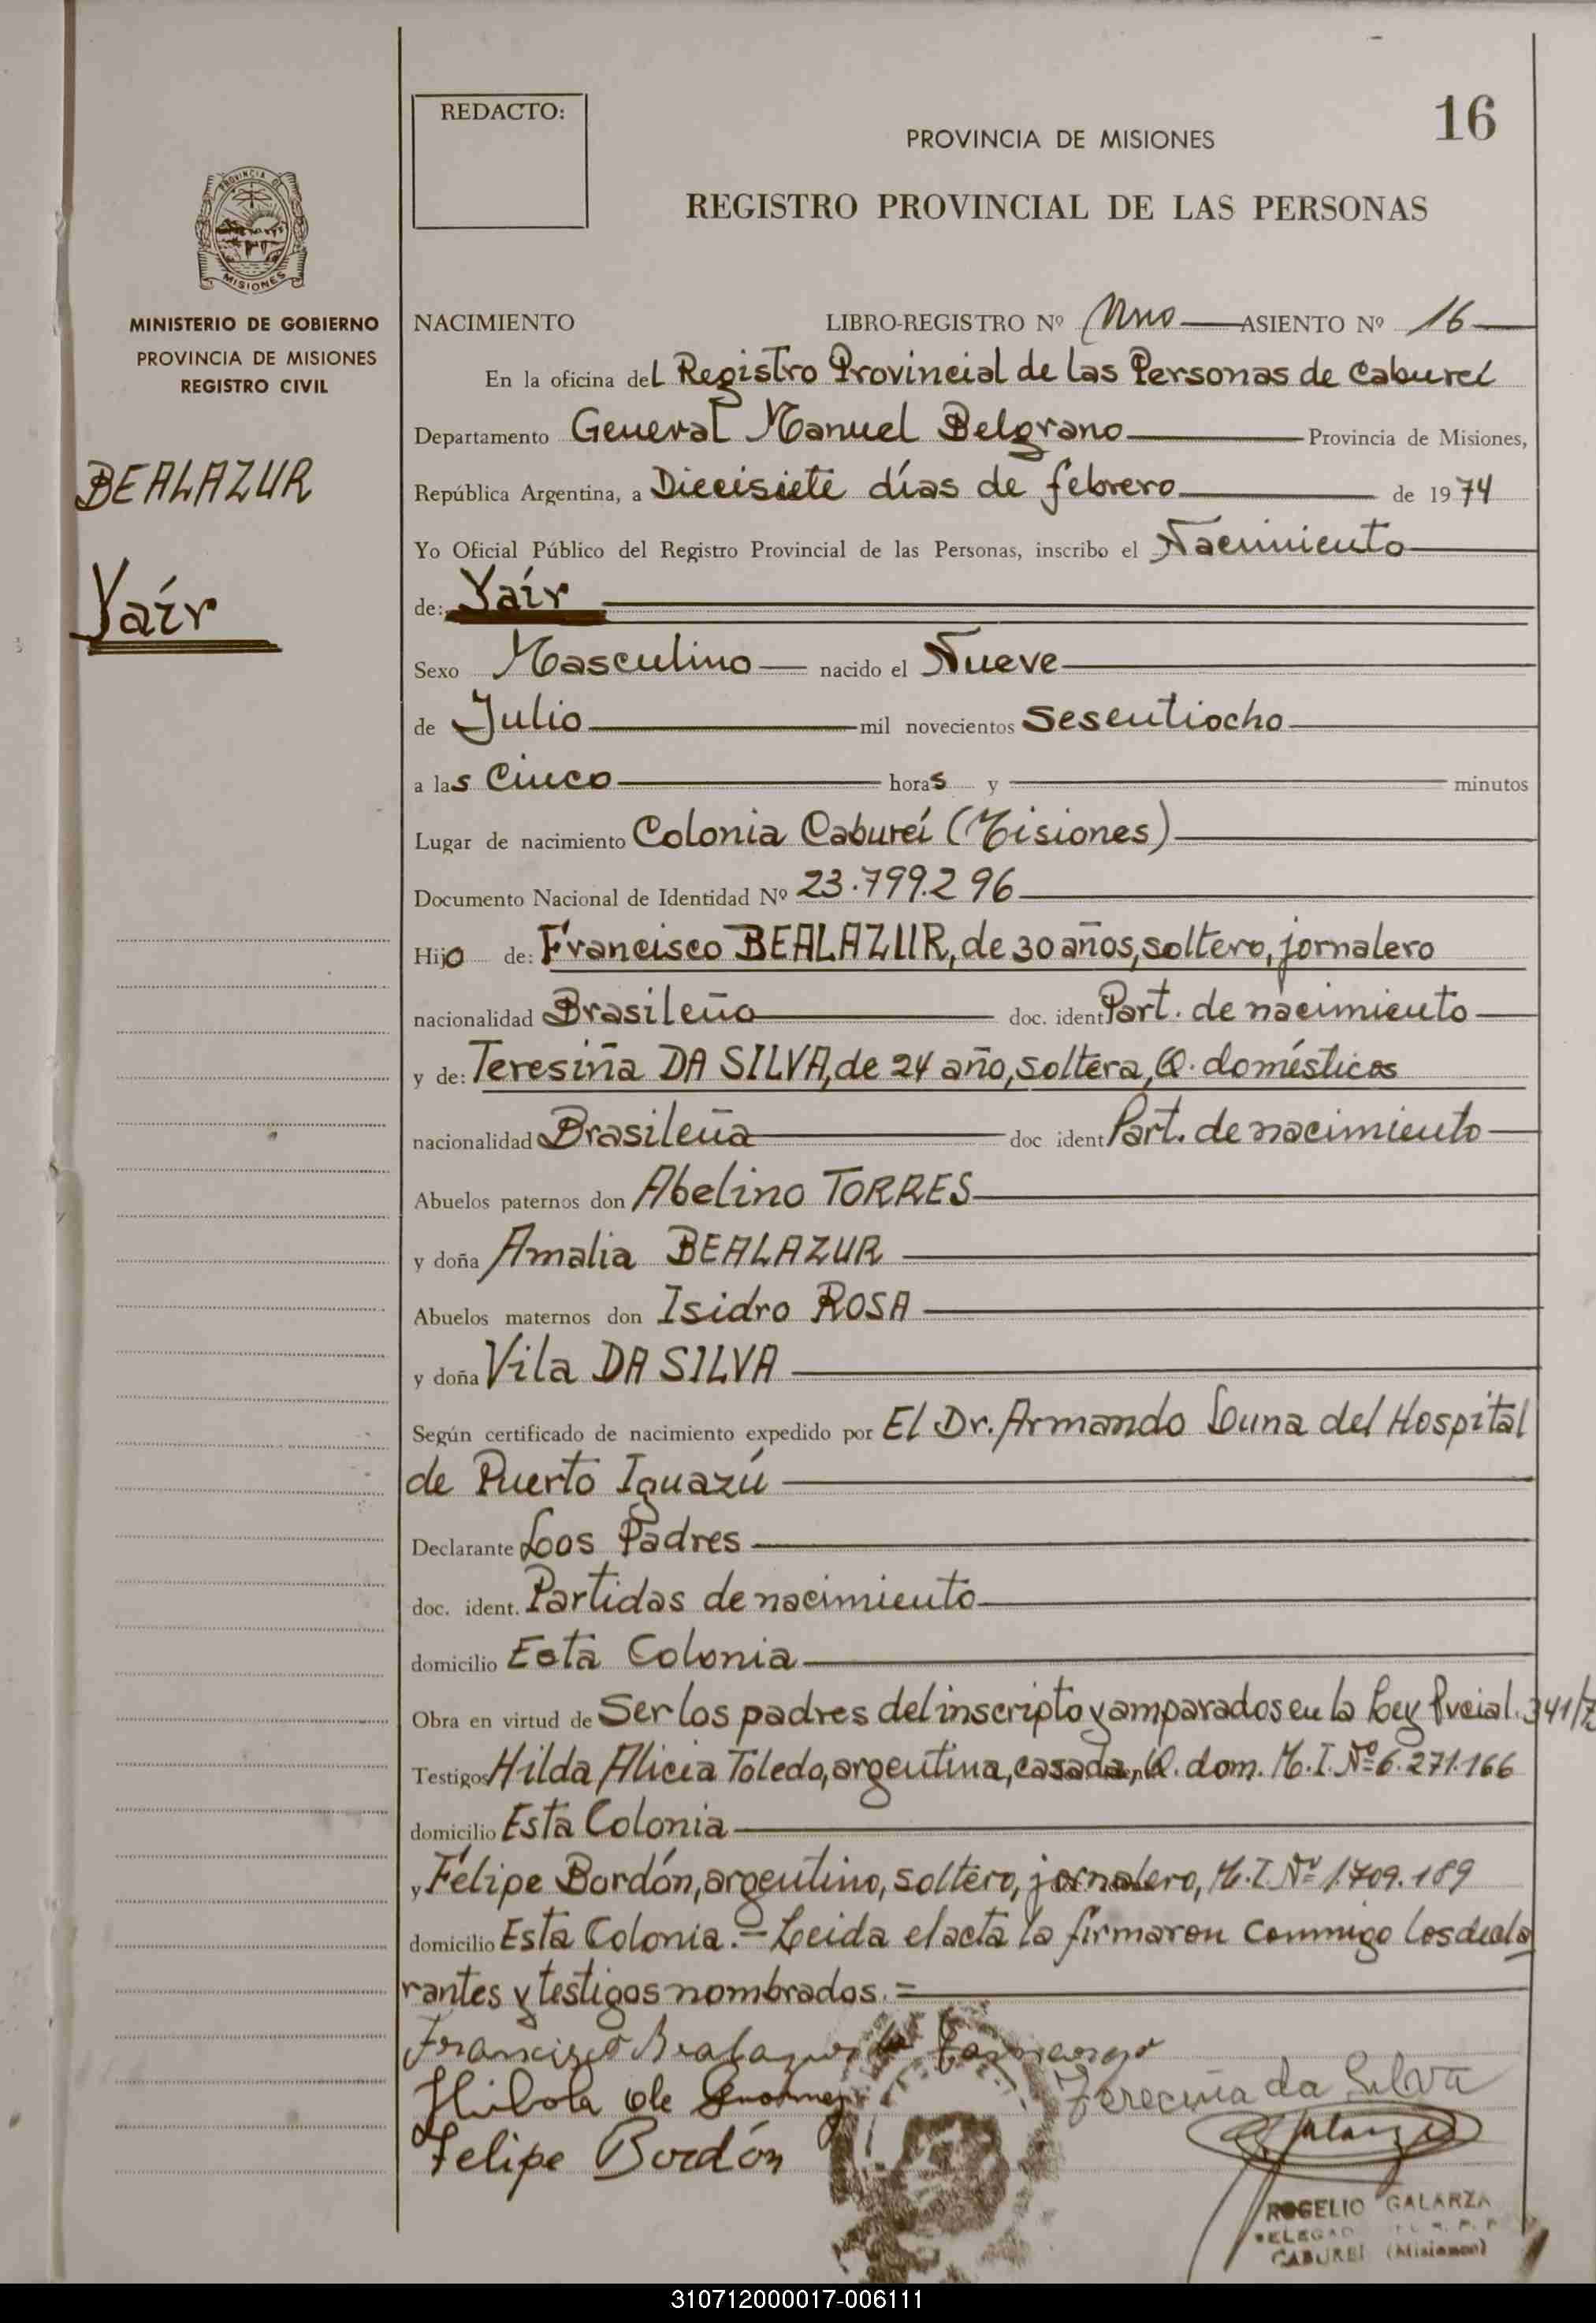 REDACTO:
16
PROVINCIA DE MISIONES
REGISTRO PROVINCIAL DE LAS PERSONAS
PROVINCIA DE
MISIONES
MINISTERIO DE GOBIERNO
PROVINCIA DE MISIONES
REGISTRO CIVIL
BEALAZUR
Yaír
NACIMIENTO LIBRO-REGISTRO Nº Uno ASIENTO Nº 16
En la oficina del Registro Provincial de las Personas de Cabureí
Departamento General Manuel Belgrano Provincia de Misiones,
República Argentina, a Diecisiete días de febrero de 1974
Yo Oficial Público del Registro Provincial de las Personas, inscribo el Nacimiento
de: Yaír
Sexo Masculino nacido el Nueve
de Julio mil novecientos Sesentiocho
a las Cinco horas y minutos
Lugar de nacimiento Colonia Cabureí (Misiones)
Documento Nacional de Identidad Nº 23.799.296
Hijo de: Francisco BEALAZUR, de 30 años, soltero, jornalero
nacionalidad Brasileño doc. ident Part. de nacimiento
y de: Teresiña DA SILVA, de 24 año, soltera, Q. domésticos
nacionalidad Brasileña doc ident Part. de nacimiento
Abuelos paternos don Abelino TORRES
y doña Amalia BEALAZUR
Abuelos maternos don Isidro ROSA
y doña Vila DA SILVA
Según certificado de nacimiento expedido por El Dr. Armando Luna del Hospital
de Puerto Iguazú
Declarante Los Padres
doc. ident. Partidas de nacimiento
domicilio Esta Colonia
Obra en virtud de Ser los padres del inscripto y amparados en la Ley Pvcial. 341/7
Testigos Hilda Alicia Toledo, argentina, casada, Q. dom. M.I. Nº 6.271.166
domicilio Esta Colonia
y Felipe Bordón, argentino, soltero, jornalero, M.I. Nº 1.709.189
domicilio Esta Colonia.= Leida el acta la firmaron conmigo los decla
rantes y testigos nombrados.=
Francisco Bealazur
de
Terecina da Silva
Felipe Bordón
Galarza
ROGELIO GALARZA
CABUREI (Misiones)
310712000017-006111